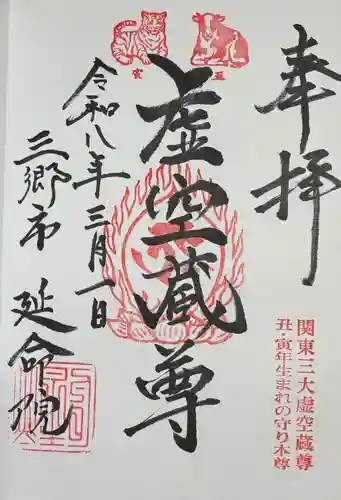 奉拝
丑
寅
虚空蔵尊
令和八年三月一日
三郷市 延命院
関東三大虚空蔵尊
丑・寅年生まれの守り本尊